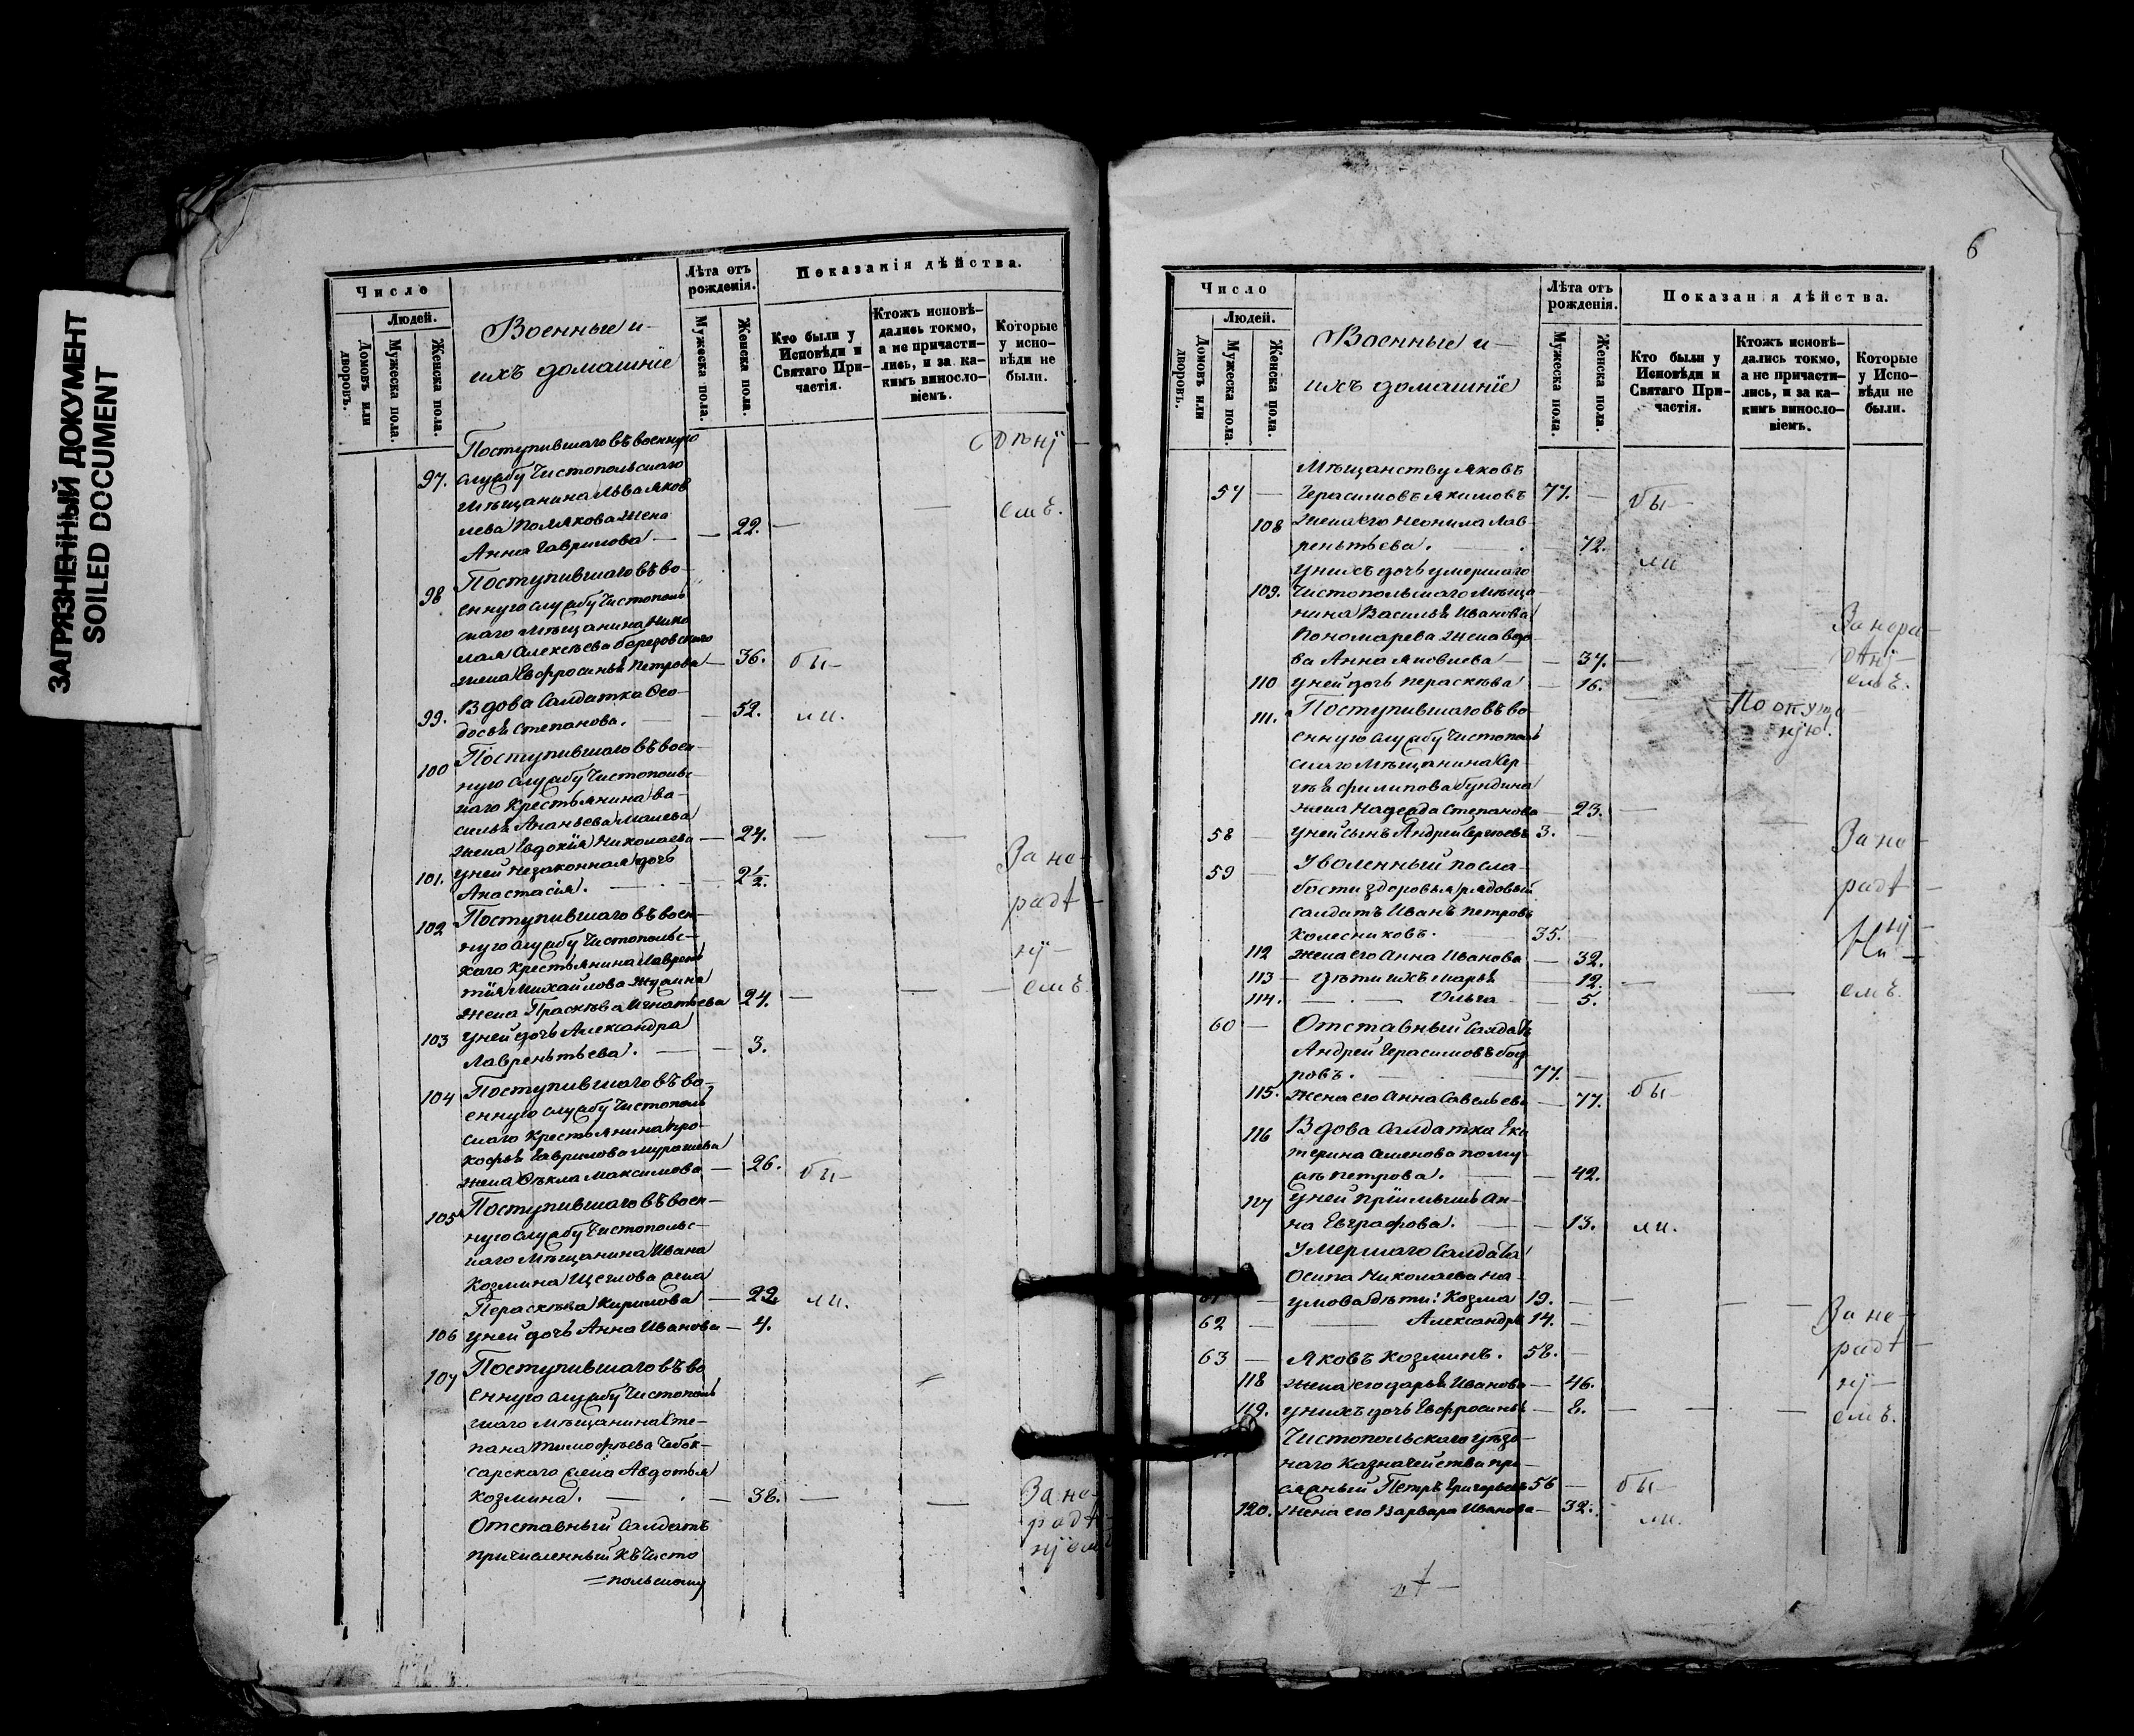 ЗАГРЯЗНЕННЫЙ ДОКУМЕНТ
SOILED DOCUMENT
Число
Людей.
Домовъ или дворовъ.
Мужеска пола.
Женска пола.
Военные и
ихъ домашніе
Лѣта отъ рожденія.
Мужеска пола.
Женска пола.
Показанія дѣйства.
Кто были у Исповѣди и Святаго Причастія.
Ктожъ исповѣдались токмо, а не причастились, и за какимъ винословіемъ.
Которые у исповѣди не были.
Поступившаго въ военную
97. службу Чистопольскаго
мѣщанина Льва Яков
лева Полякова жена
Анна Гаврилова — 22. — — емъ.
Поступившаго въ во-
98 енную службу Чистополь
скаго мѣщанина Нико
лая Алексѣева
жена Евфросинья Петрова — 36. бы-
99. Вдова Салдатка Ѳео-
досья Степанова. — 52. ли.
Поступившаго въ воен-
100 ную службу Чистопольс-
каго Крестьянина Ва-
силья Ананьева
жена Евдокія Николаева — 24. — —
101. у ней незаконная дочь За не-
Анастасія. — 2½.
102 Поступившаго въ воен- радѣ-
ную службу Чистопольс-
каго Крестьянина Лаврень ні-
тія Михайлова
жена Прасковья Игнатьева 24. — — емъ.
103 у ней дочь Александра
Лаврентьева. — 3.
Поступившаго въ во-
104 енную службу Чистополь
скаго Крестьянина Про-
кофья Гаврилова
жена Ѳекла Максимова — 26. бы-
Поступившаго въ воен-
105 ную службу Чистопольс-
каго мѣщанина Ивана
Козмина Щеглова жена
Пераскева Кирилова — 22. ли.
106 у ней дочь Анна Иванова — 4.
107 Поступившаго въ во
енную службу Чистополь
скаго мѣщанина Сте-
пана Тимофѣева Чебок-
сарскаго жена Авдотья
Козмина. — 38. — — За не-
Отставный Салдатъ радѣ-
причисленный къ Чисто ніем
=польскому
6
Число
Людей.
Домовъ или дворовъ.
Мужеска пола.
Женска пола.
Военные и
ихъ домашніе
Лѣта отъ рожденія.
Мужеска пола.
Женска пола.
Показанія дѣйства.
Кто были у Исповѣди и Святаго Причастія.
Ктожъ исповѣдались токмо, а не причастились, и за какимъ винословіемъ.
Которые у Исповѣди не были.
Мѣщанству Яковъ
57 — Герасимовъ Якимовъ 77. — бы-
108 жена его Неонила Лав-
рентьева. — 72. ли
у нихъ дочь умершаго
109. Чистопольскаго мѣща-
нина Василья Иванова
Пономарева жена вдо- За нера-
ва Анна Яковлева — 37. — дѣні-
110 у ней дочь Пераскева — 16. — емъ.
111. Поступившаго въ во-
енную службу Чистополь
скаго мѣщанина Сер-
гѣя Филипова Бундина
жена Надежда Степанова — 23. —
58 — у ней сынъ Андрей Сергѣевъ 3. — За не-
59 — Уволенный по сла-
бости здоровья рядовый радѣ-
салдатъ Иванъ Петровъ
Колесниковъ. 35.
112 жена его Анна Иванова — 32.
113 — дѣти ихъ Марья — 12. —
114. — Ольга — 5. — емъ.
60 — Отставный Салдатъ
Андрей Герасимовъ
ровъ. 77. —
115. жена его Анна Савельева — 77. бы-
116 Вдова Салдатка Ека
терина Семенова по му
жѣ Петрова. — 42.
117 у ней пріемышъ Ан-
на Евграфова. — 13. ли.
Умершаго Салдата
Осипа Николаева На-
умова дѣти: Козма 19. — — —
62 — Александръ 14. — За не-
63 — Яковъ Козминъ. 58. — радѣ-
118 жена его Дарья Иванова — 46. ні-
119. у нихъ дочь Евфросинья — 8. — — — емъ.
Чистопольскаго уѣзд-
наго Казначейства при-
сяжный Петръ Григорьевъ 56 — бы-
120. жена его Варвара Иванова — 32. ли.